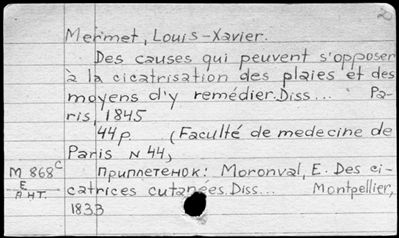 2
Mermet, Louis-Xavier.
Des causes qui peuvent s'opposer
à la cicatrisation des plaies et des
moyens d'y remédier. Diss... Pa-
ris, 1845
44p. (Faculté de medecine de
Paris N 44,
M 868 c
E
АНТ.
Приплетенок: Moronval, E. Des ci-
catrices cutanées. Diss... Montpellier,
1833